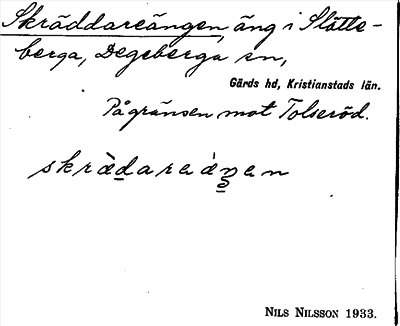 Skräddareängen, äng i Slätte-
berga, Degeberga sn,
Gärds hd, Kristianstads län.
På gränsen mot Tolseröd.
skrä̀dareáŋen
NILS NILSSON 1933.